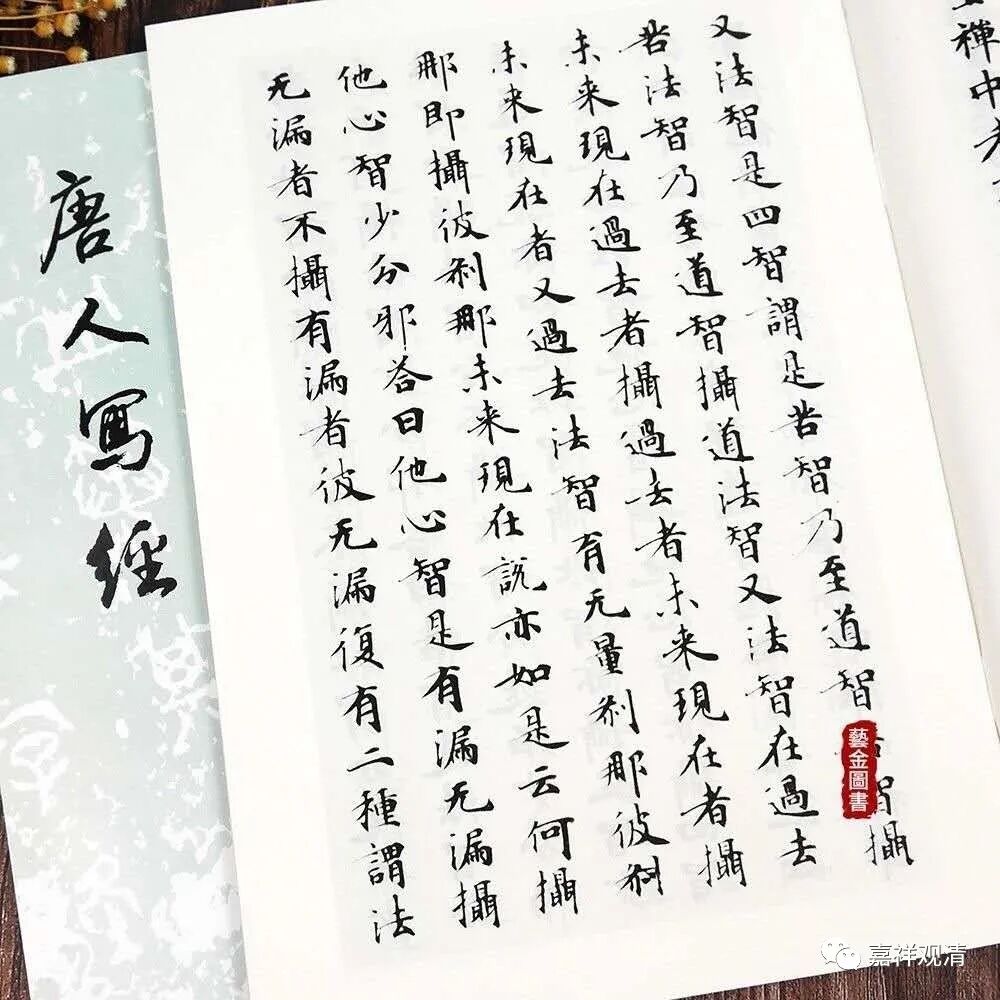 禪中
又法智是四智謂是苦智乃至道智智攝
苦法智乃至道智攝道法智又法智在過去
未来現在過去者攝過去者未来現在者攝
未来現在者又過去法智有无量刹那彼刹
那即攝彼刹那未来現在說亦如是云何攝
他心智少分邪荅曰他心智是有漏无漏攝
无漏者不攝有漏者彼无漏復有二種謂法
唐人寫經
藝金圖書
嘉祥观清